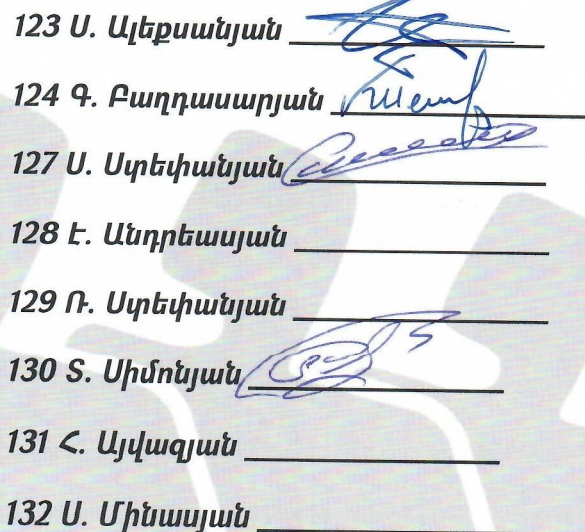 123 Ս. Ալեքսանյան
124 Գ. Բաղդասարյան
127 Ս. Ստեփանյան
128 Է. Անդրեասյան
129 Ռ. Ստեփանյան
130 Տ. Սիմոնյան
131 Հ. Այվազյան
132 Ս. Մինասյան